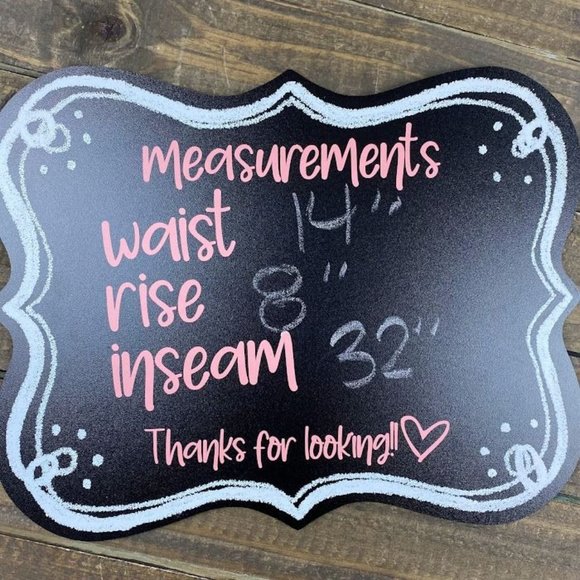 measurements
waist 14"
rise 8"
inseam 32"
Thanks for looking!!♡